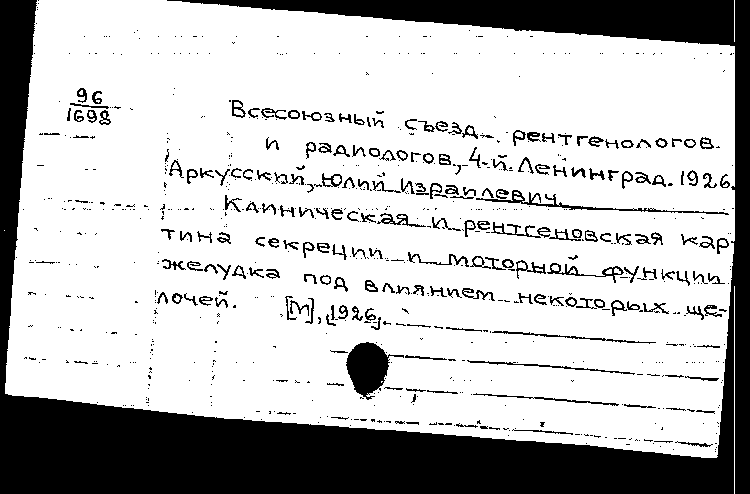 96
1692
Всесоюзный съезд рентгенологов
и радиологов, 4-й. Ленинград. 1926.
Аркусский, Юлий Израилевич.
Клиническая и рентгеновская кар-
тина секреции и моторной функции
желудка под влиянием некоторых ще-
лочей. [М], [1926].